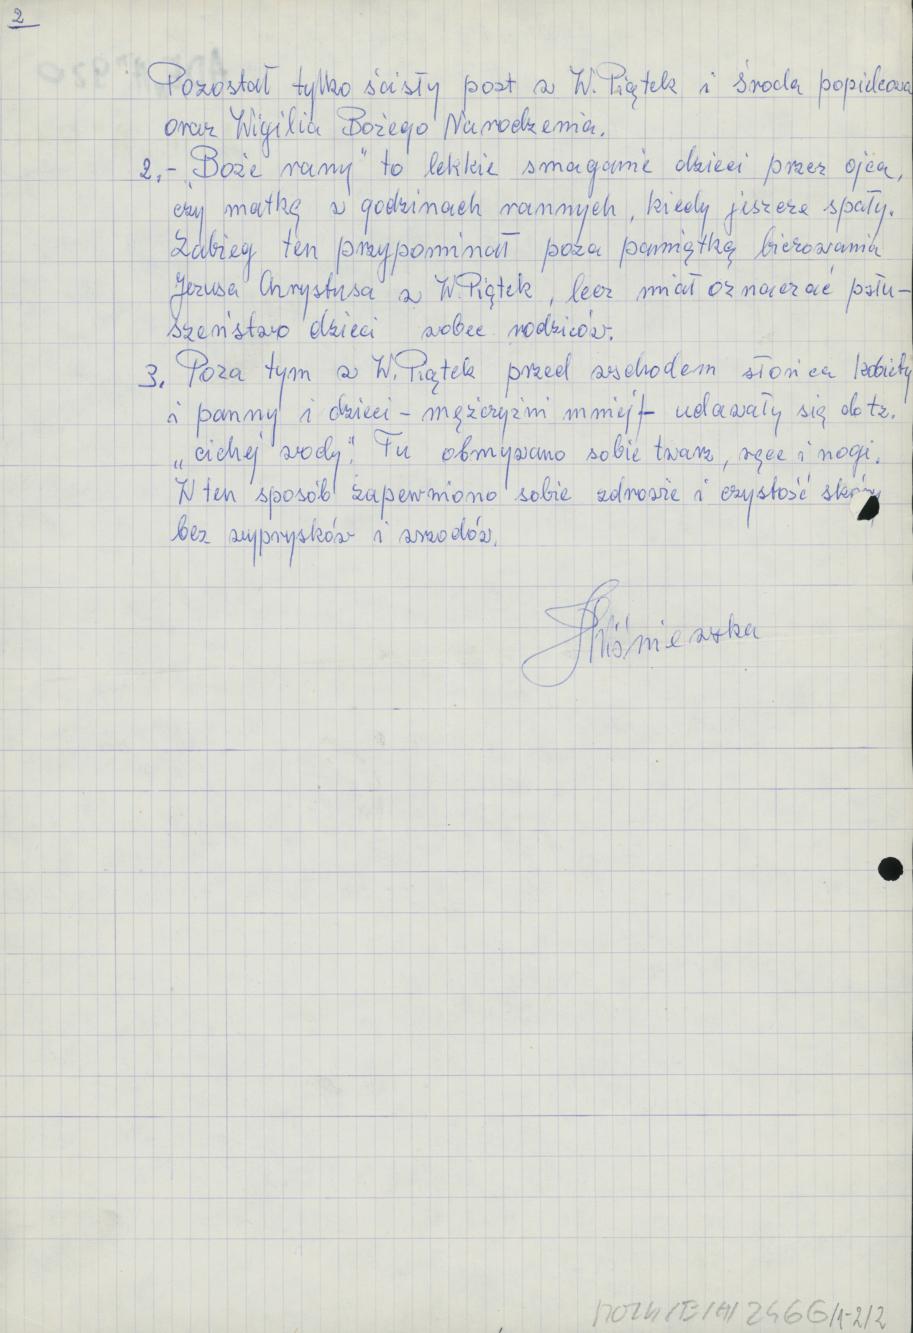 2
Pozostał tylko ścisły post w W. Piątek i środa popielcowa
oraz Wigilia Bożego Narodzenia.
2.- „Boże rany" to lekkie smaganie dzieci przez ojca,
czy matkę w godzinach rannych, kiedy jeszcze spały.
Zabieg ten przypominał poza pamiątką bierzowania
Jezusa Chrystusa w W. Piątek, lecz miał oznaczać płu-
szeństwo dzieci wobec rodziców.
3. Poza tym w W. Piątek przed wschodem słońca kobiety
i panny i dzieci - mężczyźni mniej - udawały się do tz.
„cichej wody". Tu obmywano sobie twarz, ręce i nogi.
W ten sposób zapewniono sobie zdrowie i czystość skóry
bez wyprysków i wrzodów.
Wiśniewska
2466/1-2/2